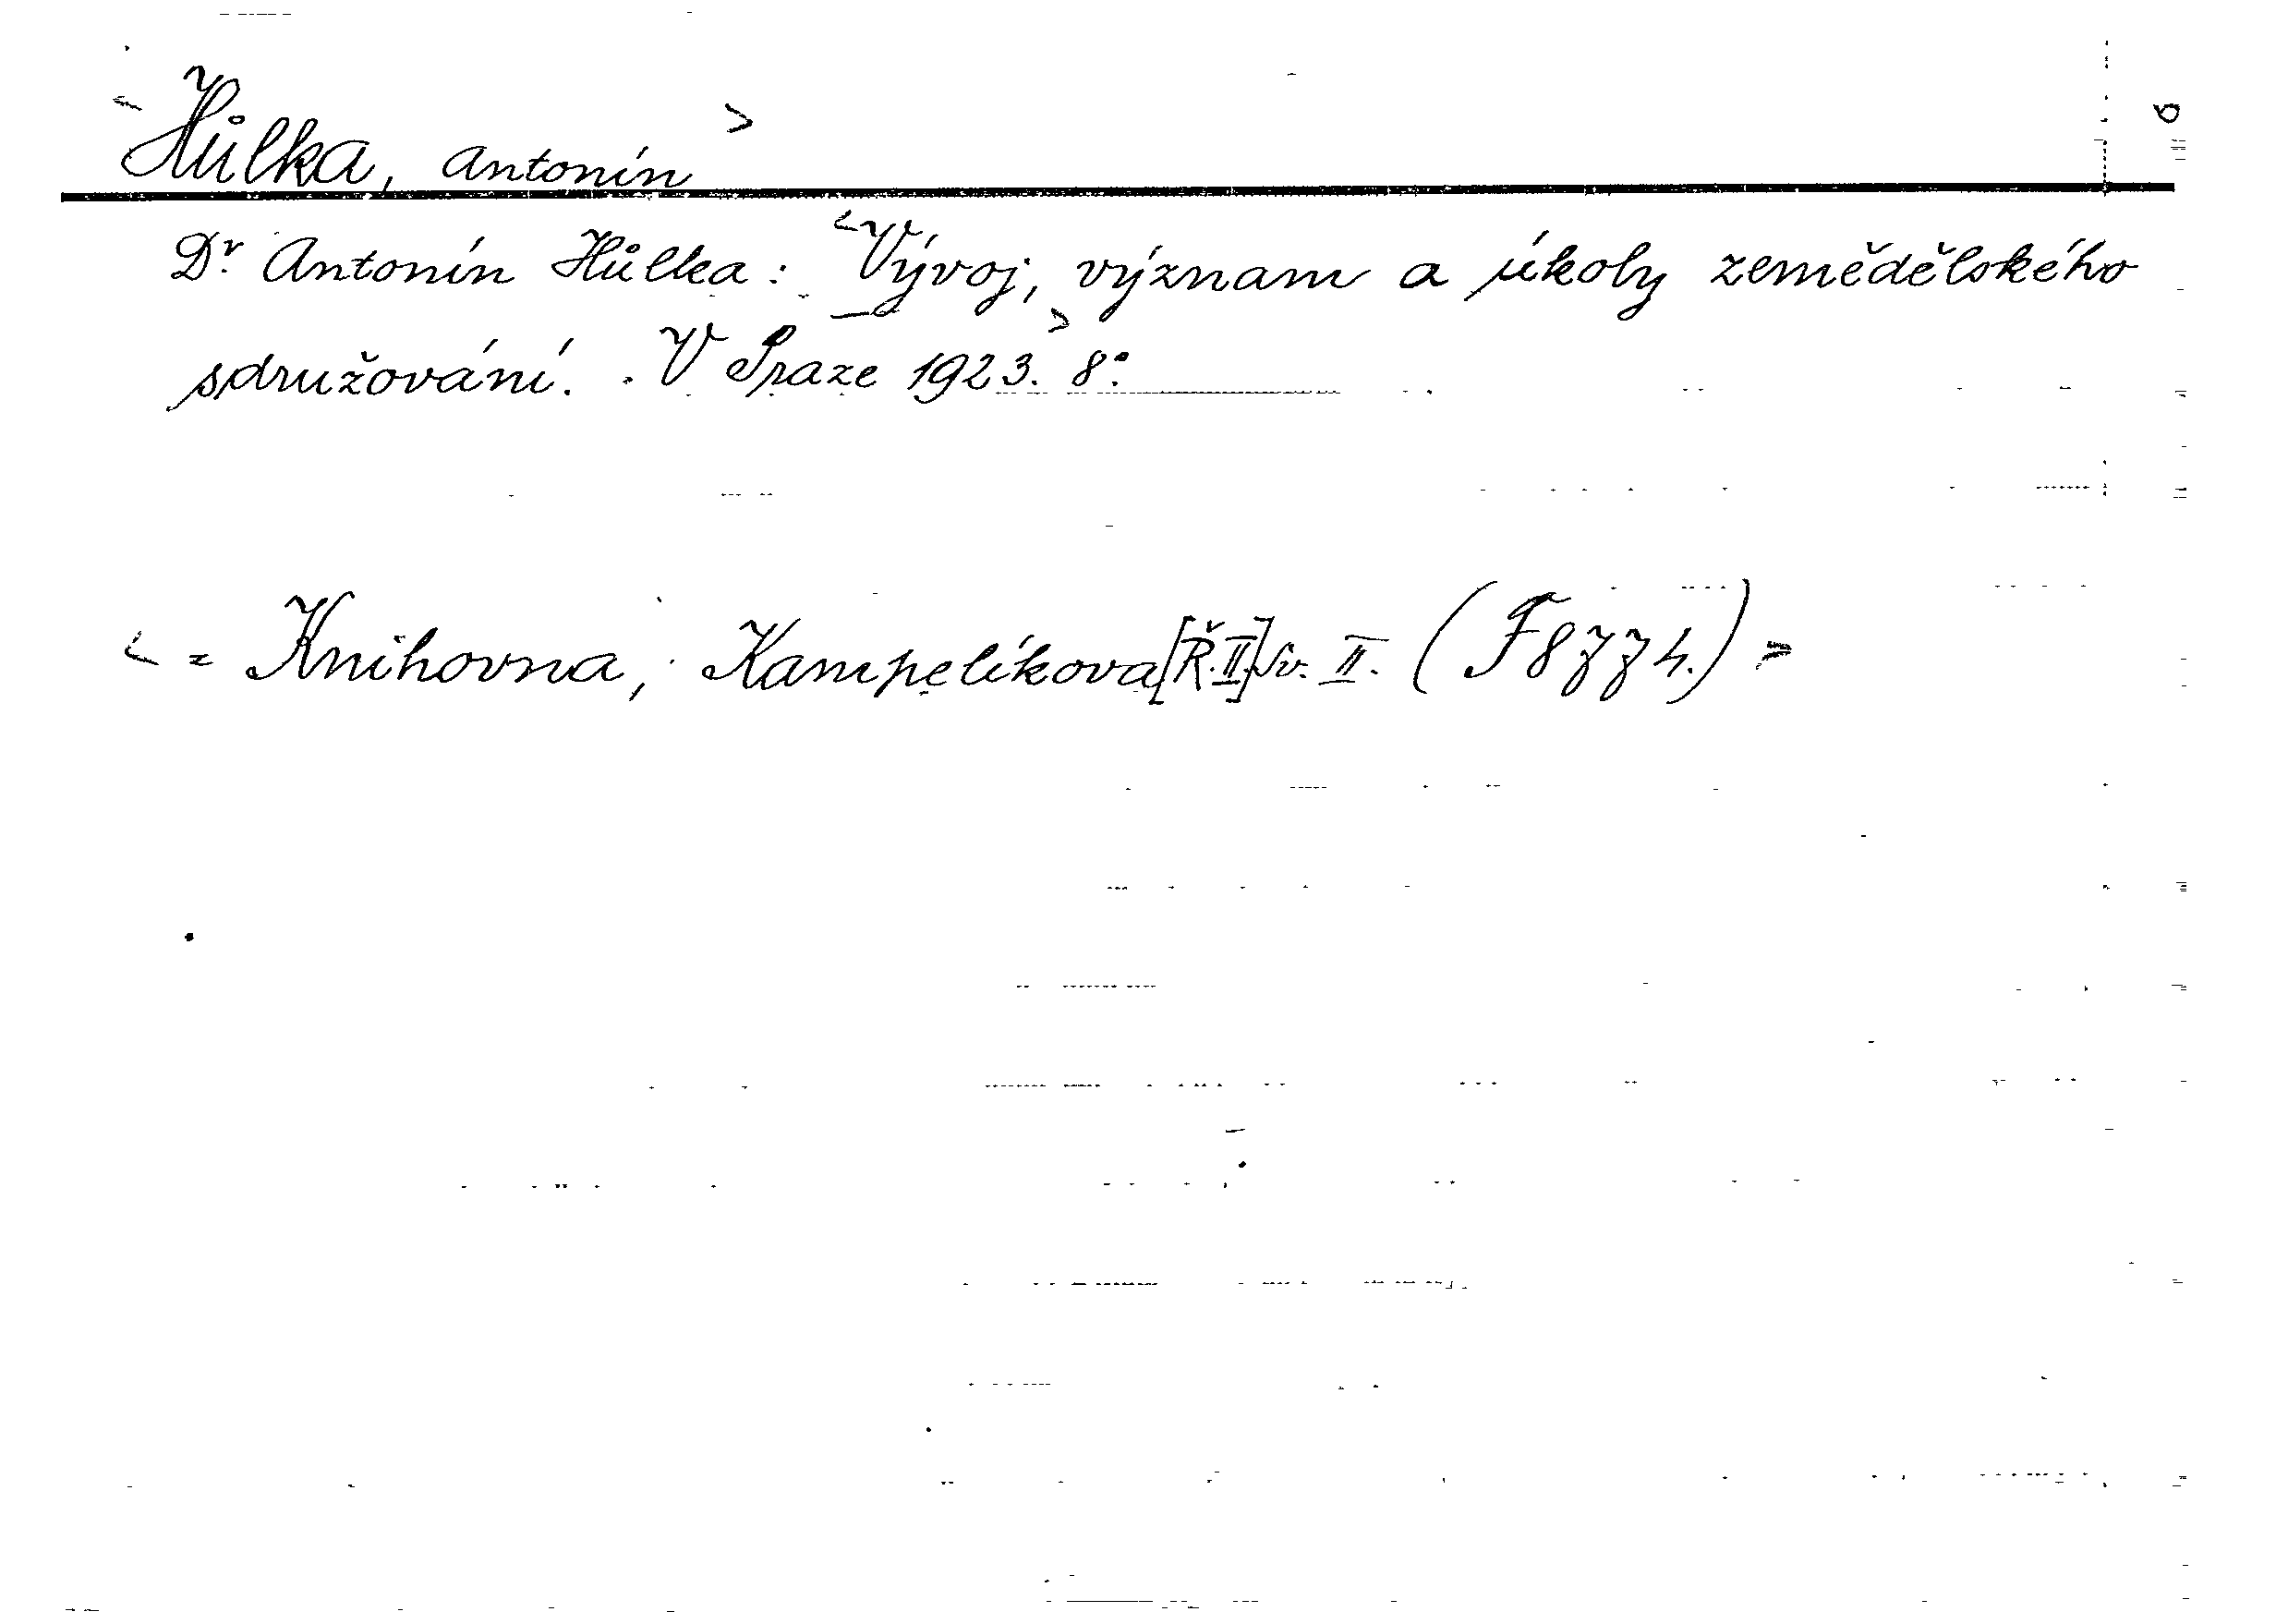 <Hůlka, Antonín>
Dr. Antonín Hůlka: <Vývoj, význam a úkoly zemědělského
sdružování. V Praze 1923.> 8°.
< = Knihovna, Kampelíkova [Ř. II] Sv. II. (F 8774.) >